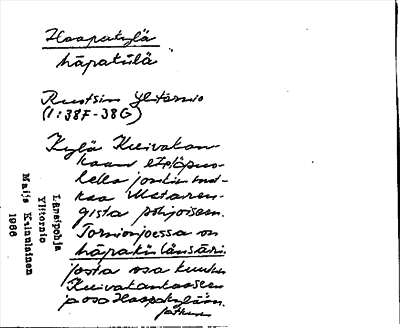 Haapakylä
hāpakülä
Ruotsin Ylitornio
(1:38F-38G)
Kylä Kuivakan-
kaan eteläpuo-
lella jonkin mat-
kaa Mataren-
gista pohjoiseen.
Tornionjoessa on
hāpakülänsāri,
josta osa kuuluu
Kuivakankaaseen
ja osa Haapakylään.
jatkuu
Länsipohja
Ylitornio
Maija Kainulainen
1966